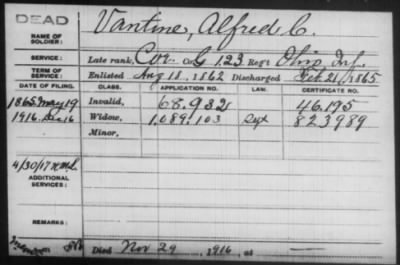 DEAD
NAME OF SOLDIER: Vantine, Alfred C.
SERVICE: Late rank, Cor. Co. G 123 Reg't Ohio Inf.
TERM OF SERVICE: Enlisted Aug 18, 1862 Discharged Feb 21, 1865
DATE OF FILING. CLASS. APPLICATION NO. LAW. CERTIFICATE NO.
1865 May 19 Invalid, 68.932 46.195
1916. Dec 16 Widow, 1,089.103 823989
Minor,
4/30/17
ADDITIONAL SERVICES:
REMARKS:
Died Nov 29, 1916, at —